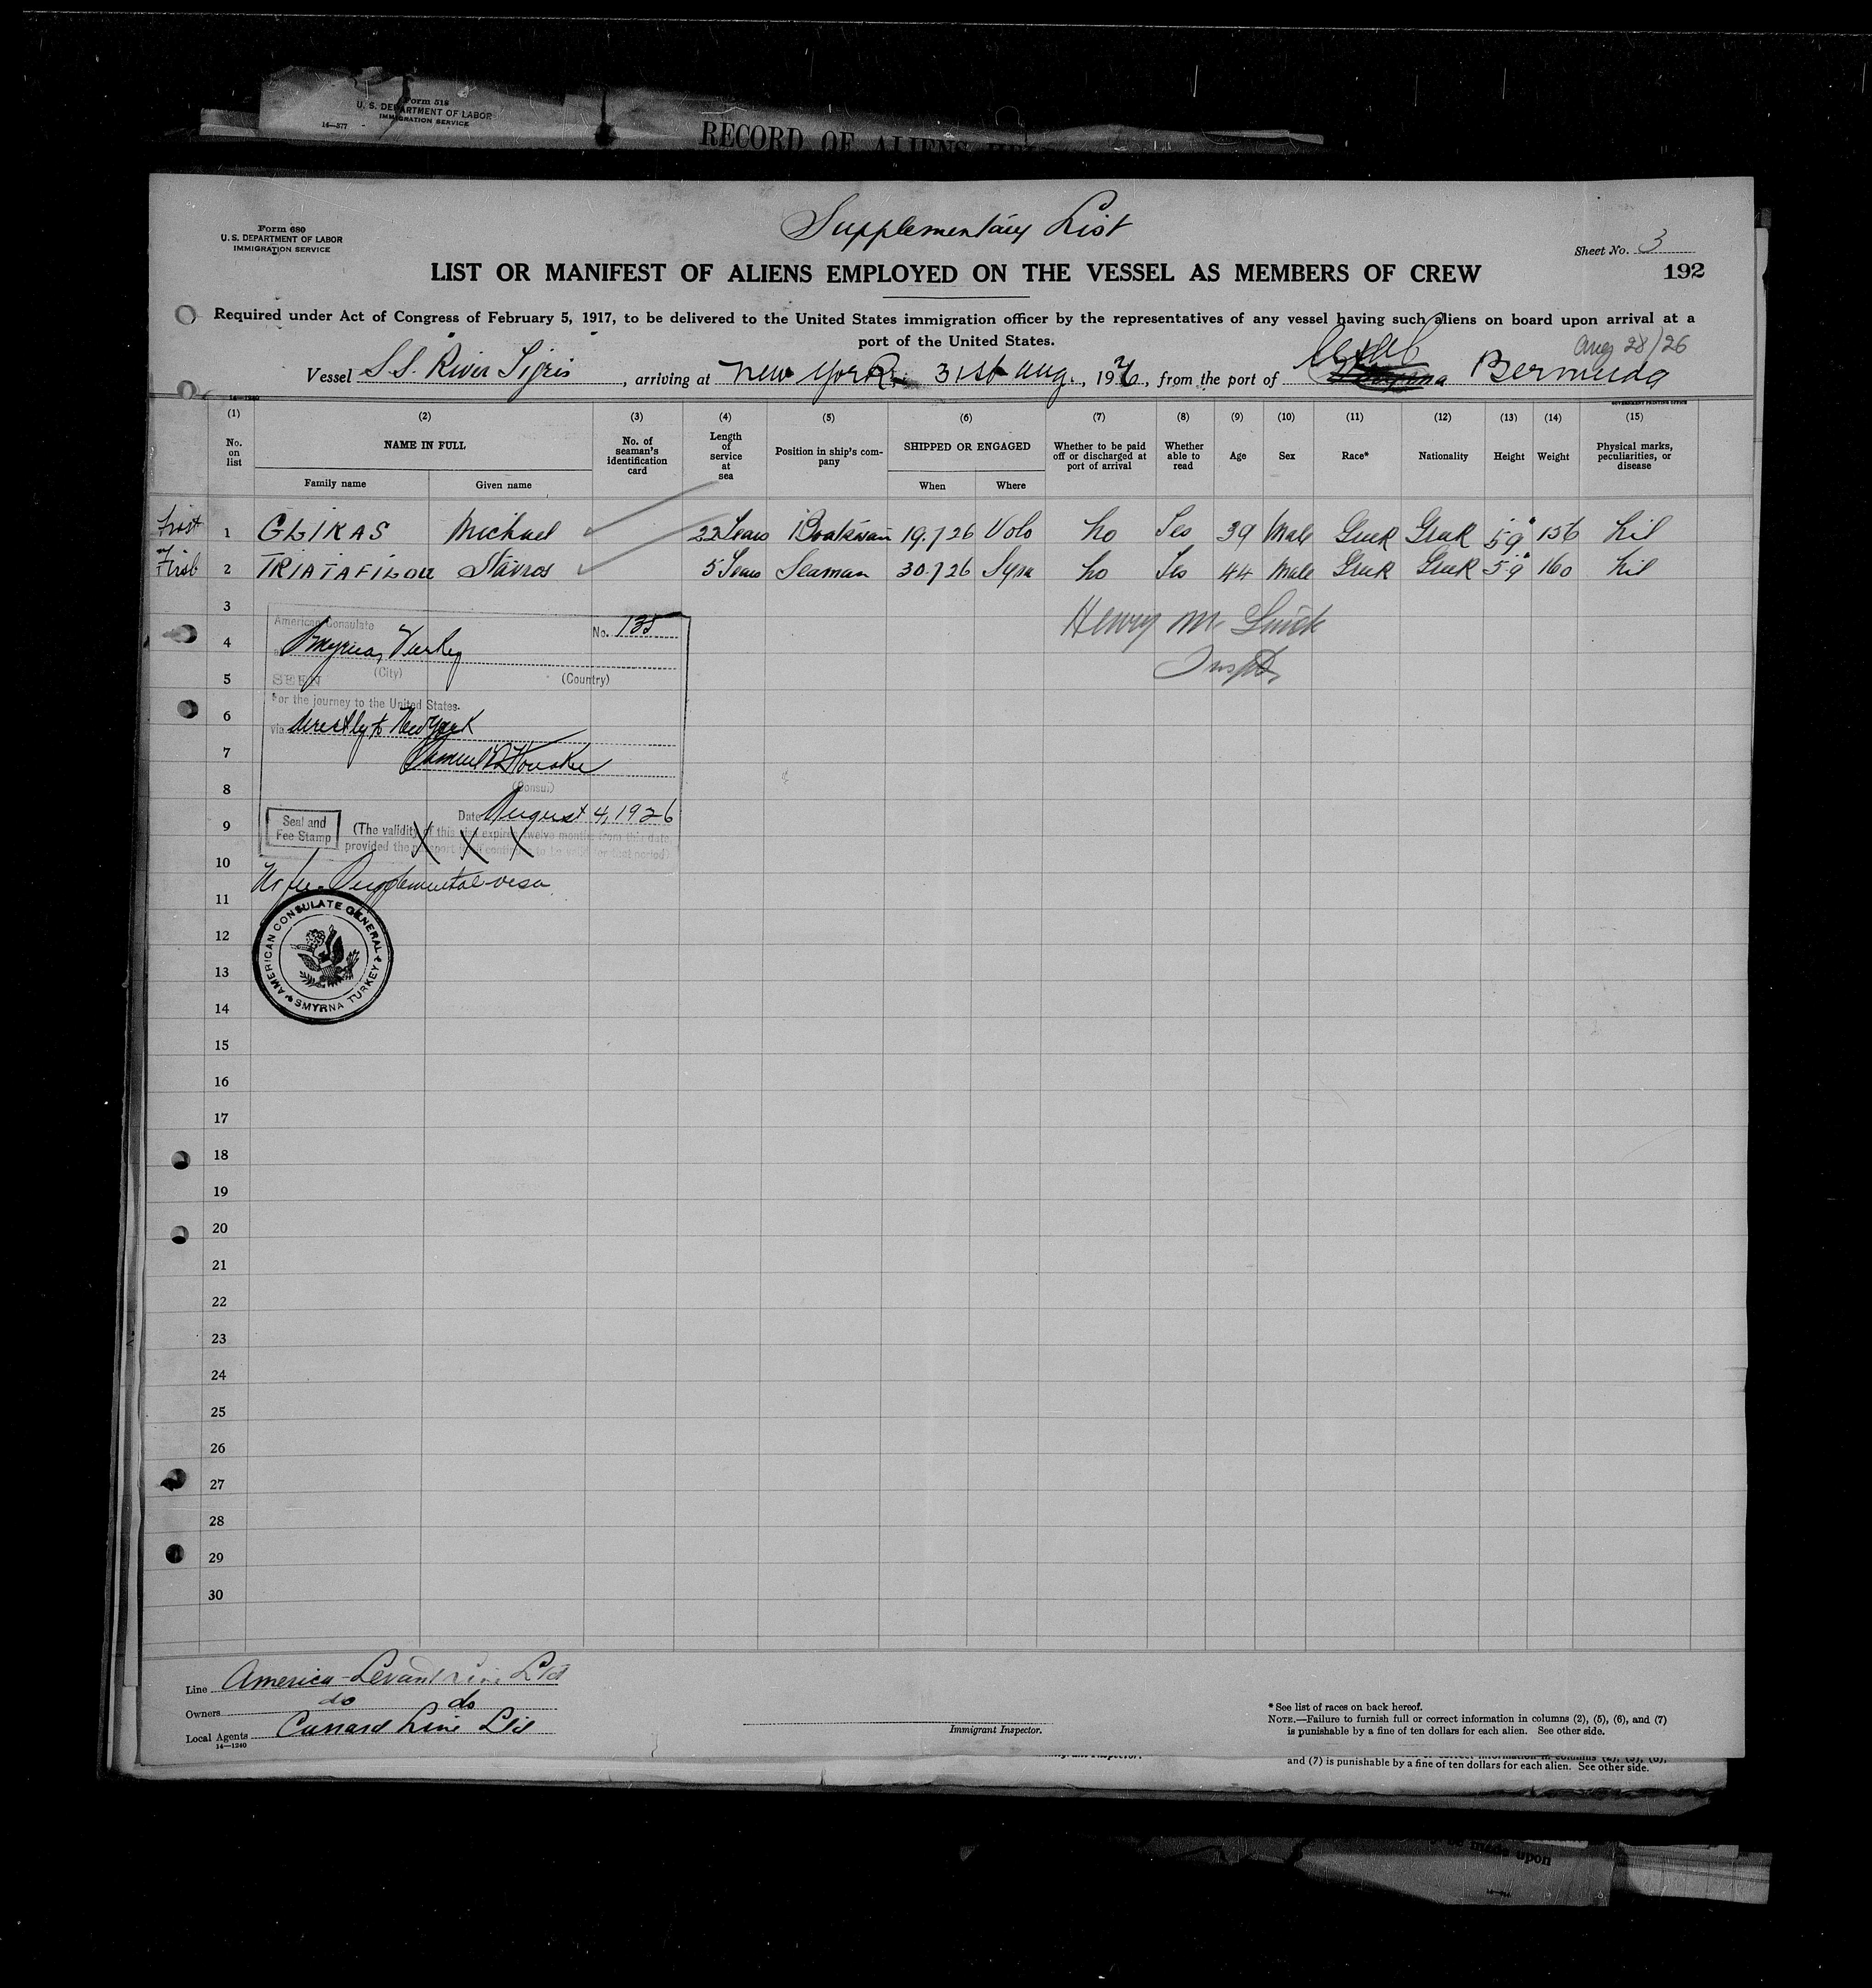 Form 518
U. S. DEPARTMENT OF LABOR
IMMIGRATION SERVICE
14—577
RECORD OF ALIENS
Supplementary List
Form 680
U. S. DEPARTMENT OF LABOR
IMMIGRATION SERVICE
Sheet No. 3
LIST OR MANIFEST OF ALIENS EMPLOYED ON THE VESSEL AS MEMBERS OF CREW
192
Required under Act of Congress of February 5, 1917, to be delivered to the United States immigration officer by the representatives of any vessel having such aliens on board upon arrival at a
port of the United States.
Aug 28/26
Vessel S.S. River Tigris, arriving at New York, 31st Aug., 1926, from the port of Bermuda
14—1240
GOVERNMENT PRINTING OFFICE
(1) (2) (3) (4) (5) (6) (7) (8) (9) (10) (11) (12) (13) (14) (15)
No. on list NAME IN FULL No. of seaman's identification card Length of service at sea Position in ship's company SHIPPED OR ENGAGED Whether to be paid off or discharged at port of arrival Whether able to read Age Sex Race* Nationality Height Weight Physical marks, peculiarities, or disease
Family name Given name When Where
First 1 GLIKAS Michael 22 Years Boatswain 19.7.26 Volo No Yes 39 Male Greek Greek 5'9" 156 Nil
First 2 TRIATAFILOU Stavros 5 Years Seaman 30.7.26 Syra No Yes 44 Male Greek Greek 5'9" 160 Nil
3
American Consulate No. 138
4
Smyrna, Turkey
Henry M.
Inspt.
(City) (Country)
5
SEEN
For the journey to the United States.
6
via directly to New York
7
Samuel
8
(Consul)
Date August 4, 1926
9
Seal and
Fee Stamp
(The validity of this visa expires twelve months from this date,
provided the passport itself continues to be valid for that period)
X X X
10
No fee. Supplemental visa
11
AMERICAN CONSULATE GENERAL
SMYRNA TURKEY
12
13
14
15
16
17
18
19
20
21
22
23
24
25
26
27
28
29
30
Line America-Levant Line Ltd
Owners do do
Local Agents Cunard Line Ltd
14—1240
Immigrant Inspector.
* See list of races on back hereof.
NOTE.—Failure to furnish full or correct information in columns (2), (5), (6), and (7)
is punishable by a fine of ten dollars for each alien. See other side.
and (7) is punishable by a fine of ten dollars for each alien. See other side.
made upon